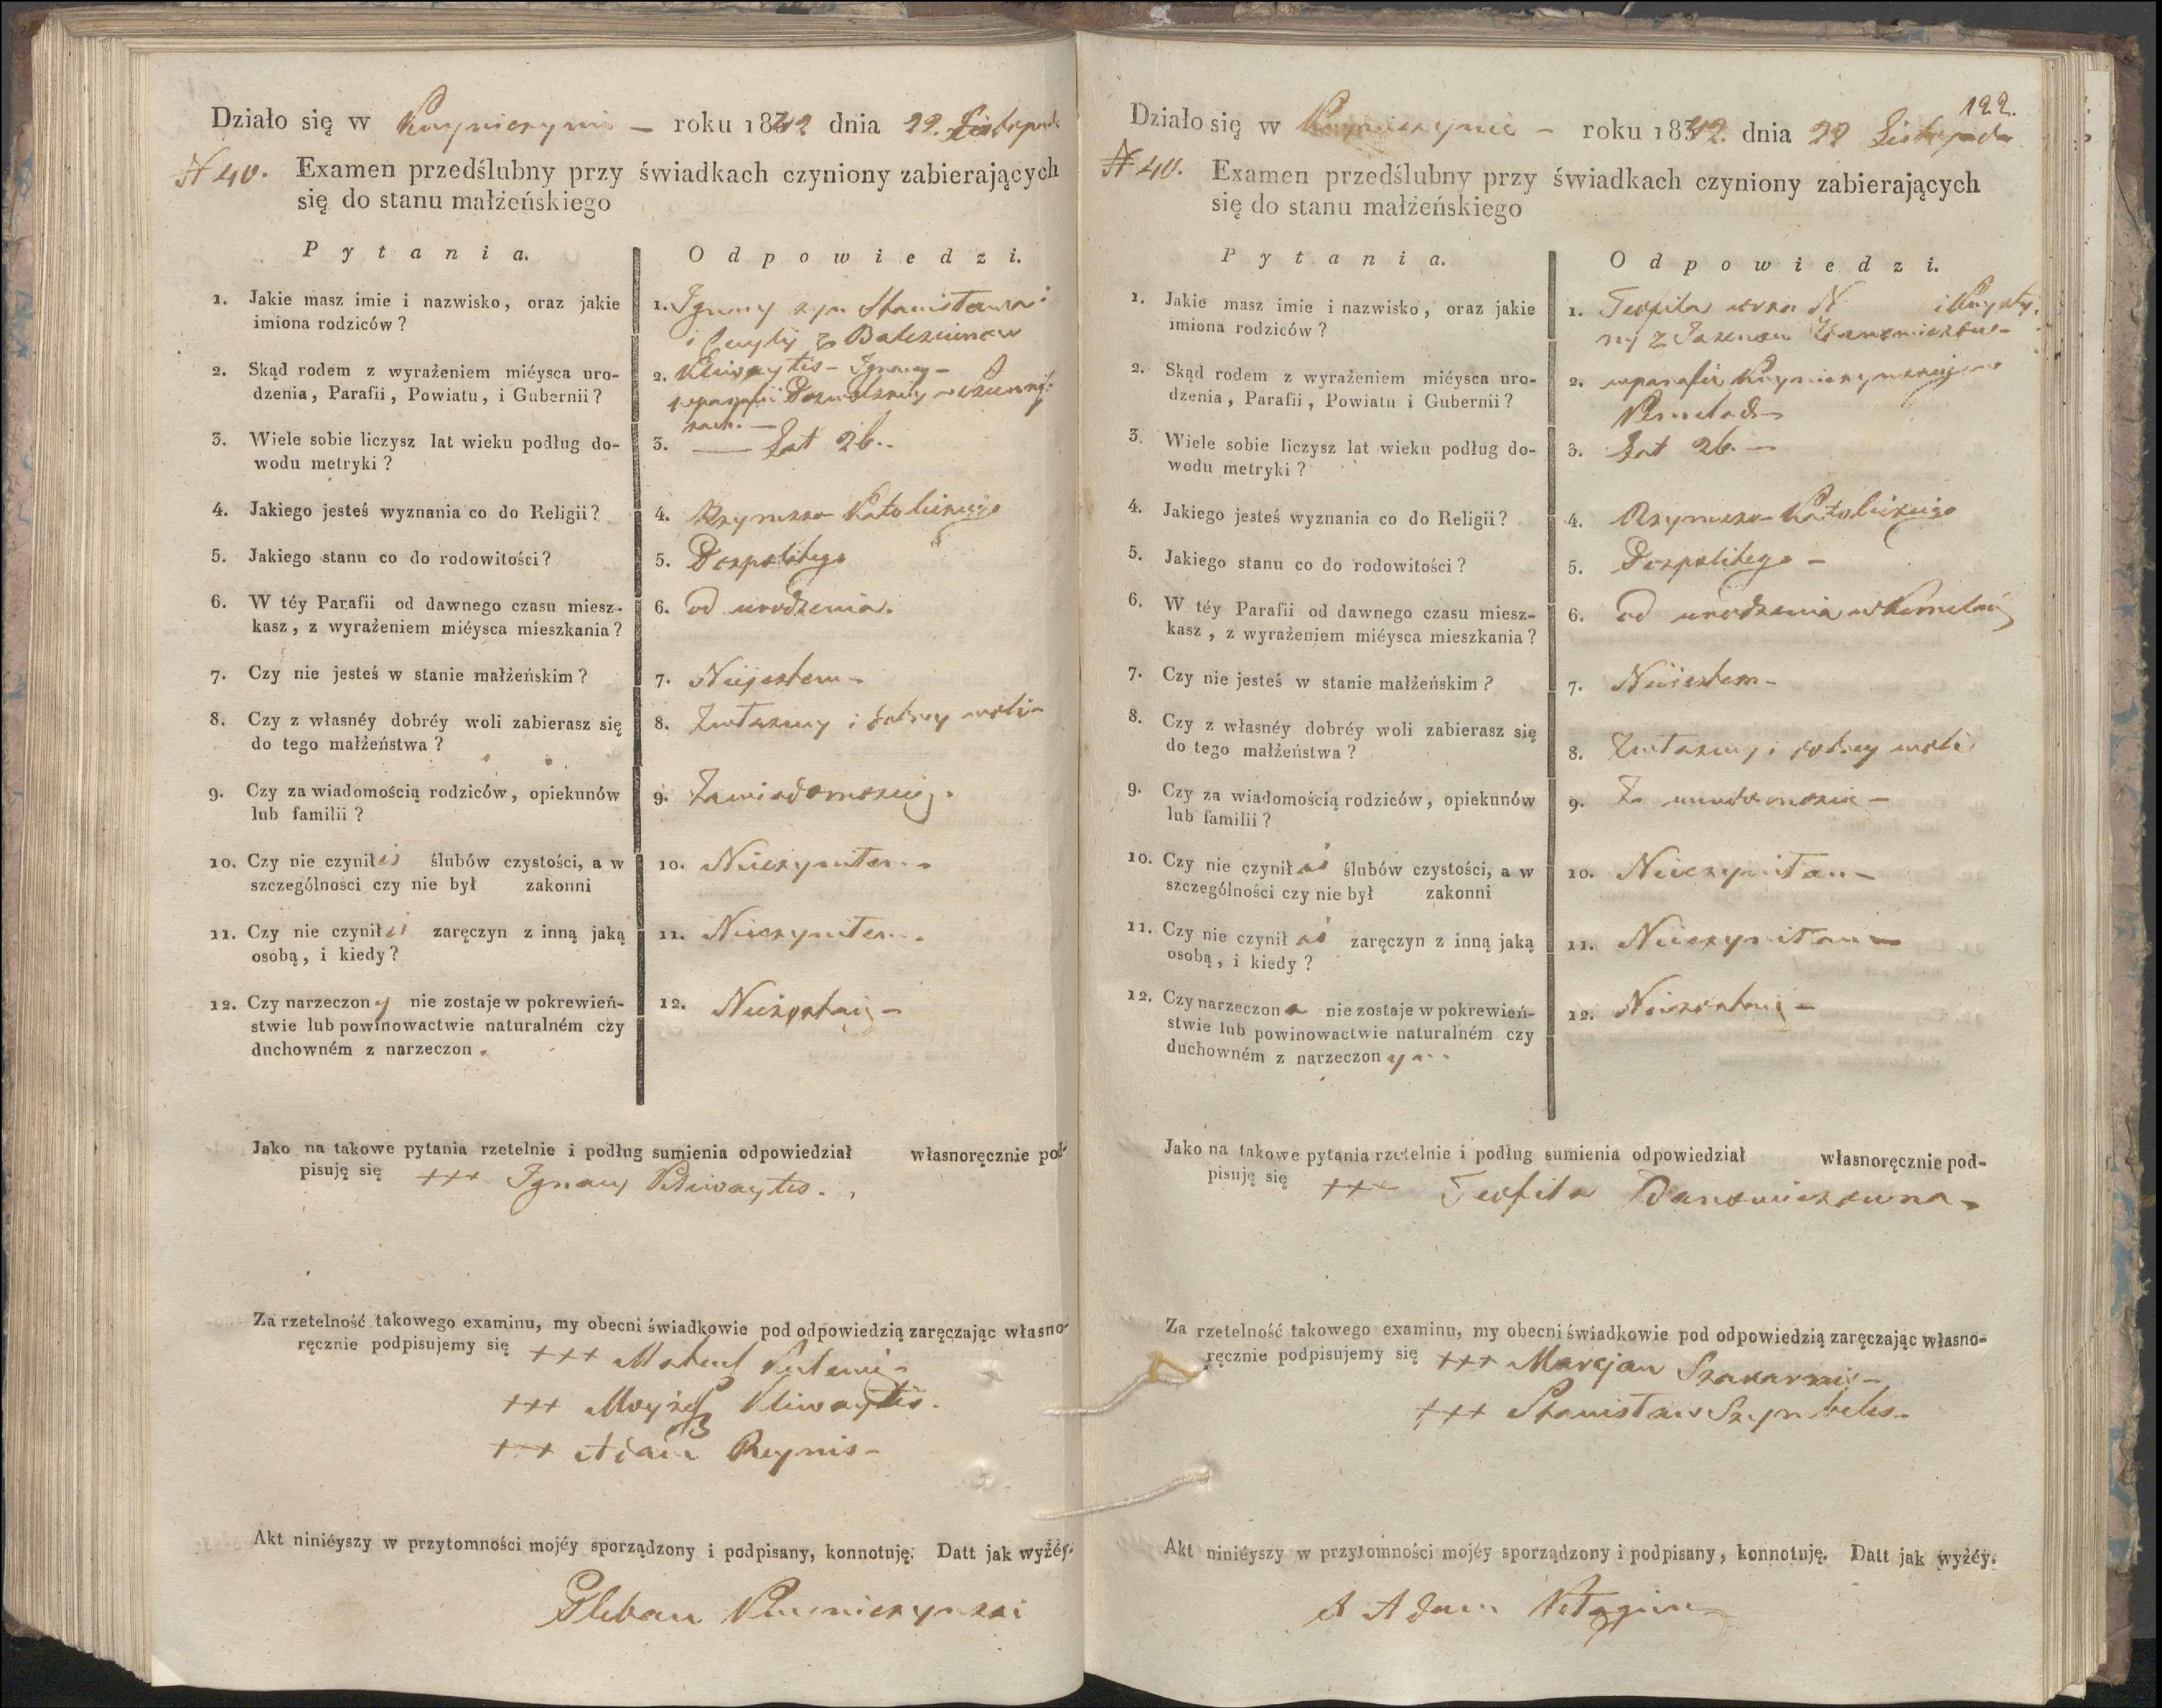 Działo się w roku 1842 dnia 22. Listopada
N 40. Examen przedślubny przy świadkach czyniony zabierających
się do stanu małżeńskiego
Pytania.
Odpowiedzi.
1. Jakie masz imie i nazwisko, oraz jakie
imiona rodziców?
1. Ignacy syn Stanisława
i Cecylij z
2. Skąd rodem z wyrażeniem miéysca uro-
dzenia, Parafii, Powiatu, i Gubernii?
2. Kliwaytis - Ignacy -
w parafii
3. Wiele sobie liczysz lat wieku podług do-
wodu metryki?
3. — Lat 26..
4. Jakiego jesteś wyznania co do Religii?
4. Rzymsko Katolickiego
5. Jakiego stanu co do rodowitości?
5. Pospolitego
6. W téy Parafii od dawnego czasu miesz-
kasz, z wyrażeniem miéysca mieszkania?
6. od urodzenia.
7. Czy nie jesteś w stanie małżeńskim?
7. Niejestem -
8. Czy z własnéy dobréy woli zabierasz się
do tego małżeństwa?
8. Zwłasney i dobrey woli -
9. Czy za wiadomością rodziców, opiekunów
lub familii?
9. Zawiadomością.
10. Czy nie czyniłeś ślubów czystości, a w
szczególnosci czy nie był zakonni
10. Nieczyniłem -
11. Czy nie czyniłeś zaręczyn z inną jaką
osobą, i kiedy?
11. Nieczyniłem.
12. Czy narzeczony nie zostaje w pokrewień-
stwie lub powinowactwie naturalném czy
duchowném z narzeczon
12. Niezostaię -
Jako na takowe pytania rzetelnie i podług sumienia odpowiedział własnoręcznie pod-
pisuję się +++ Ignacy Kliwaytis.
Za rzetelność takowego examinu, my obecni świadkowie pod odpowiedzią zaręczając własno-
ręcznie podpisujemy się +++ Mateusz
+++ Moyżesz Kliwaytis.
+++ Adam Reynis -
Akt niniéyszy w przytomności mojéy sporządzony i podpisany, konnotuję. Datt jak wyżéy.
Pleban
122.
Działo się w roku 1842. dnia 22 Listopada
N 40. Examen przedślubny przy świadkach czyniony zabierających
się do stanu małżeńskiego
Pytania.
Odpowiedzi.
1. Jakie masz imie i nazwisko, oraz jakie
imiona rodziców?
1. Teofila corka N i Krysty-
ny z
2. Skąd rodem z wyrażeniem miéysca uro-
dzenia, Parafii, Powiatu i Gubernii?
2. w parafii
3. Wiele sobie liczysz lat wieku podług do-
wodu metryki?
3. Lat 26. -
4. Jakiego jesteś wyznania co do Religii?
4. Rzymsko-Katolickiego
5. Jakiego stanu co do rodowitości?
5. Pospolitego -
6. W téy Parafii od dawnego czasu miesz-
kasz, z wyrażeniem miéysca mieszkania?
6. od urodzenia w
7. Czy nie jesteś w stanie małżeńskim?
7. Niejestem -
8. Czy z własnéy dobréy woli zabierasz się
do tego małżeństwa?
8. Zwłasney i dobrey woli
9. Czy za wiadomością rodziców, opiekunów
lub familii?
9. Za wiadomością -
10. Czy nie czyniłaś ślubów czystości, a w
szczególności czy nie był zakonni
10. Nieczyniłam -
11. Czy nie czyniłaś zaręczyn z inną jaką
osobą, i kiedy?
11. Nieczyniłam -
12. Czy narzeczona nie zostaje w pokrewień-
stwie lub powinowactwie naturalném czy
duchowném z narzeczonym
12. Niezostaię -
Jako na takowe pytania rzetelnie i podług sumienia odpowiedział własnoręcznie pod-
pisuję się +++ Teofila
Za rzetelność takowego examinu, my obecni świadkowie pod odpowiedzią zaręczając własno-
ręcznie podpisujemy się +++ Marcjan
+++ Stanisław
Akt niniéyszy w przytomności mojéy sporządzony i podpisany, konnotuję. Datt jak wyżéy.
X Adam